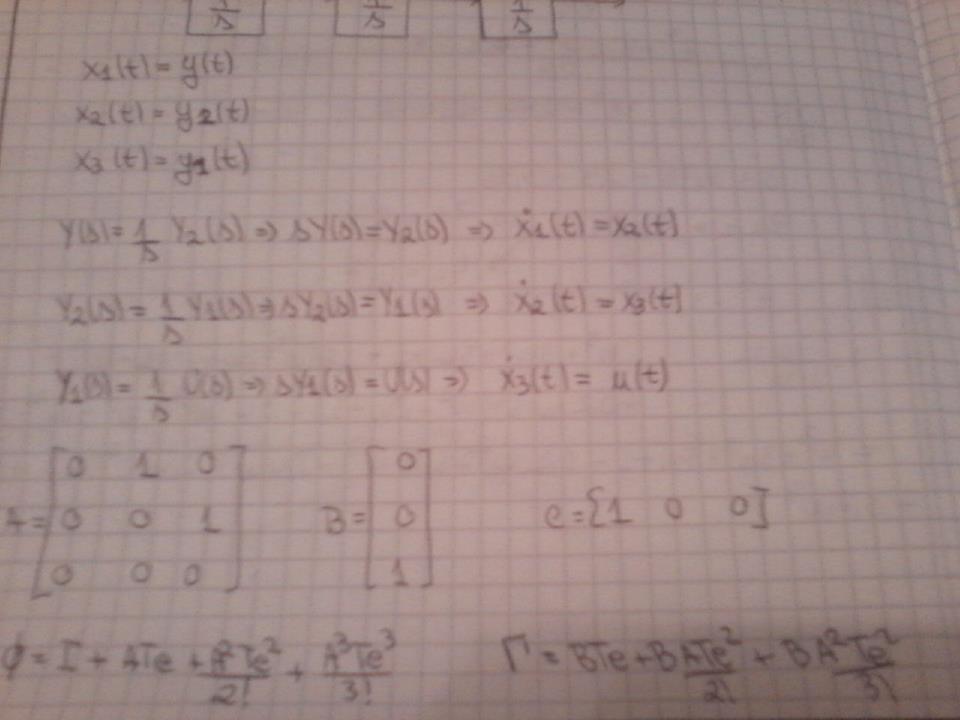 1/s 1/s 1/s
x1(t) = y(t)
x2(t) = y2(t)
x3(t) = y1(t)
Y(s) = 1/s Y2(s) => sY(s) = Y2(s) => ẋ1(t) = x2(t)
Y2(s) = 1/s Y1(s) => sY2(s) = Y1(s) => ẋ2(t) = x3(t)
Y1(s) = 1/s U(s) => sY1(s) = U(s) => ẋ3(t) = u(t)
A = [0 1 0; 0 0 1; 0 0 0] B = [0; 0; 1] C = [1 0 0]
Φ = I + ATe + A²Te²/2! + A³Te³/3! Γ = BTe + BATe²/2! + BA²Te²/3!